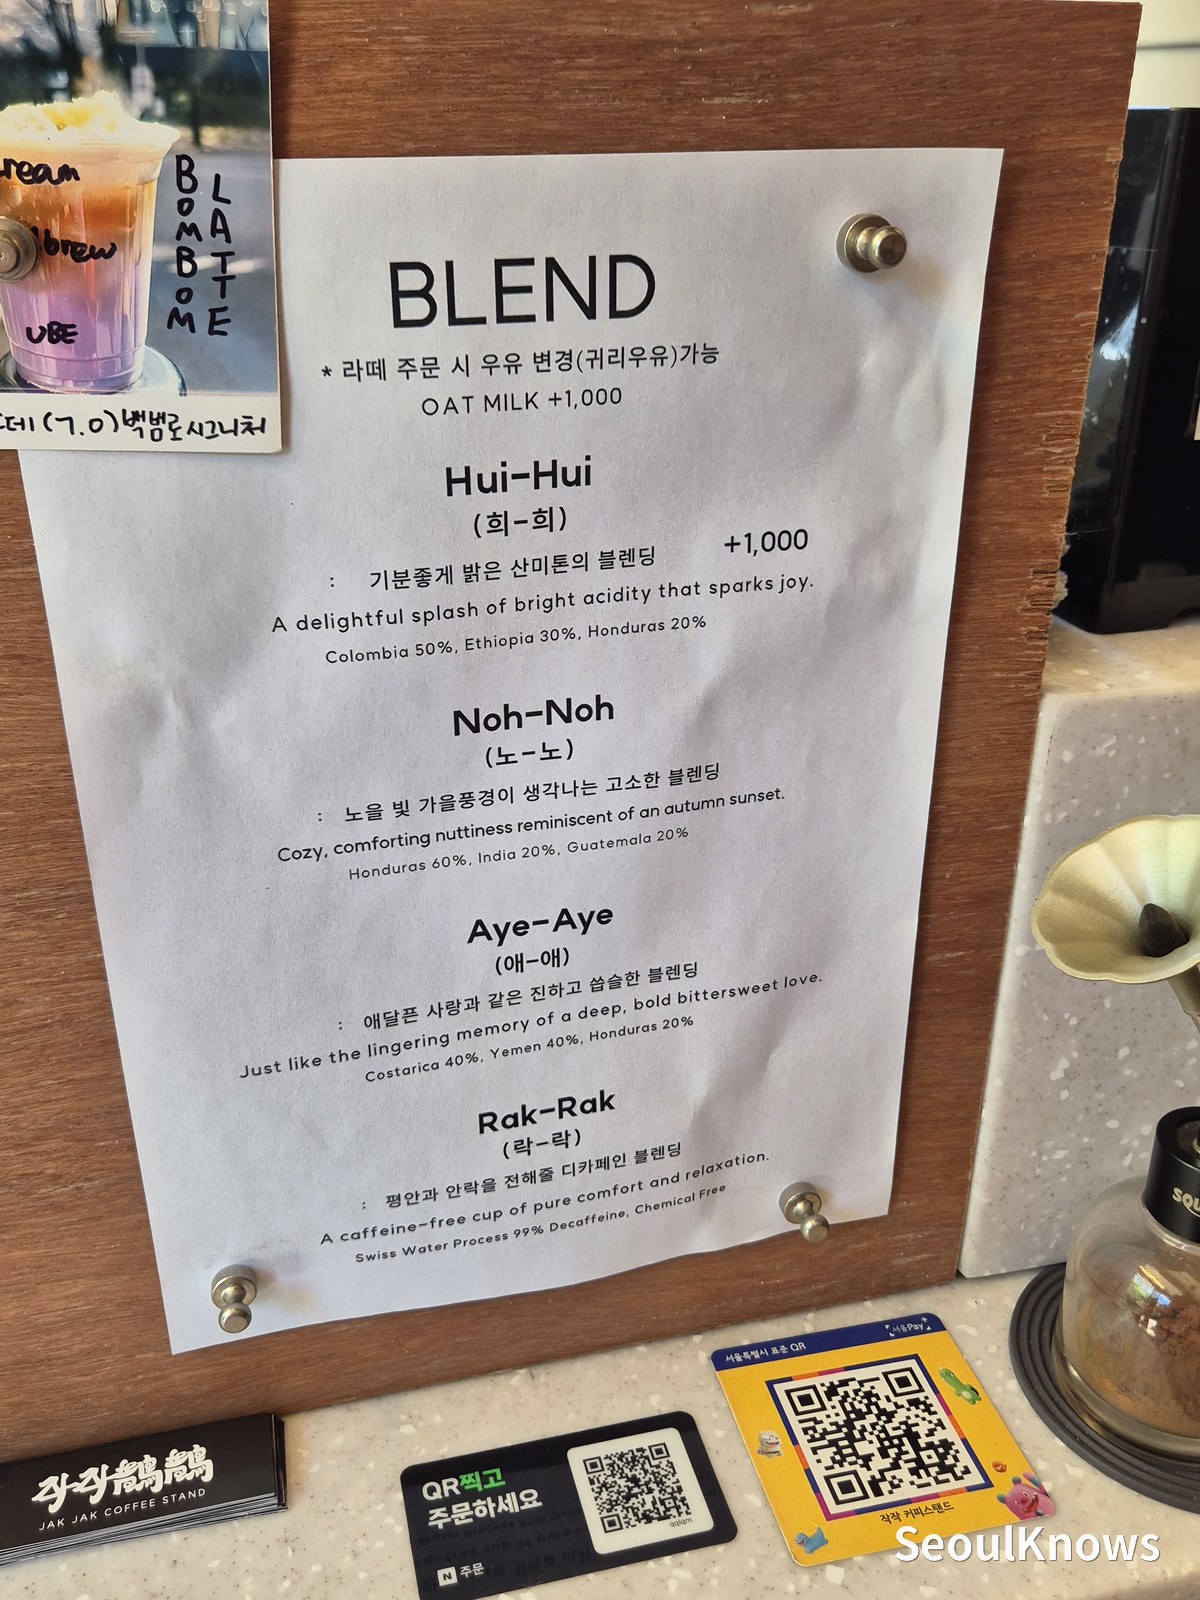 BOMBOM
LATTE
brew
UBE
(7.0)백범로시그니처
BLEND
* 라떼 주문 시 우유 변경(귀리우유)가능
OAT MILK +1,000
Hui-Hui
(희-희)
: 기분좋게 밝은 산미톤의 블렌딩 +1,000
A delightful splash of bright acidity that sparks joy.
Colombia 50%, Ethiopia 30%, Honduras 20%
Noh-Noh
(노-노)
: 노을 빛 가을풍경이 생각나는 고소한 블렌딩
Cozy, comforting nuttiness reminiscent of an autumn sunset.
Honduras 60%, India 20%, Guatemala 20%
Aye-Aye
(애-애)
: 애달픈 사랑과 같은 진하고 씁슬한 블렌딩
Just like the lingering memory of a deep, bold bittersweet love.
Costarica 40%, Yemen 40%, Honduras 20%
Rak-Rak
(락-락)
: 평안과 안락을 전해줄 디카페인 블렌딩
A caffeine-free cup of pure comfort and relaxation.
Swiss Water Process 99% Decaffeine, Chemical Free
작작鵲鵲
JAK JAK COFFEE STAND
QR찍고
주문하세요
N 주문
서울특별시 표준 QR
서울Pay+
작작 커피스탠드
SeoulKnows